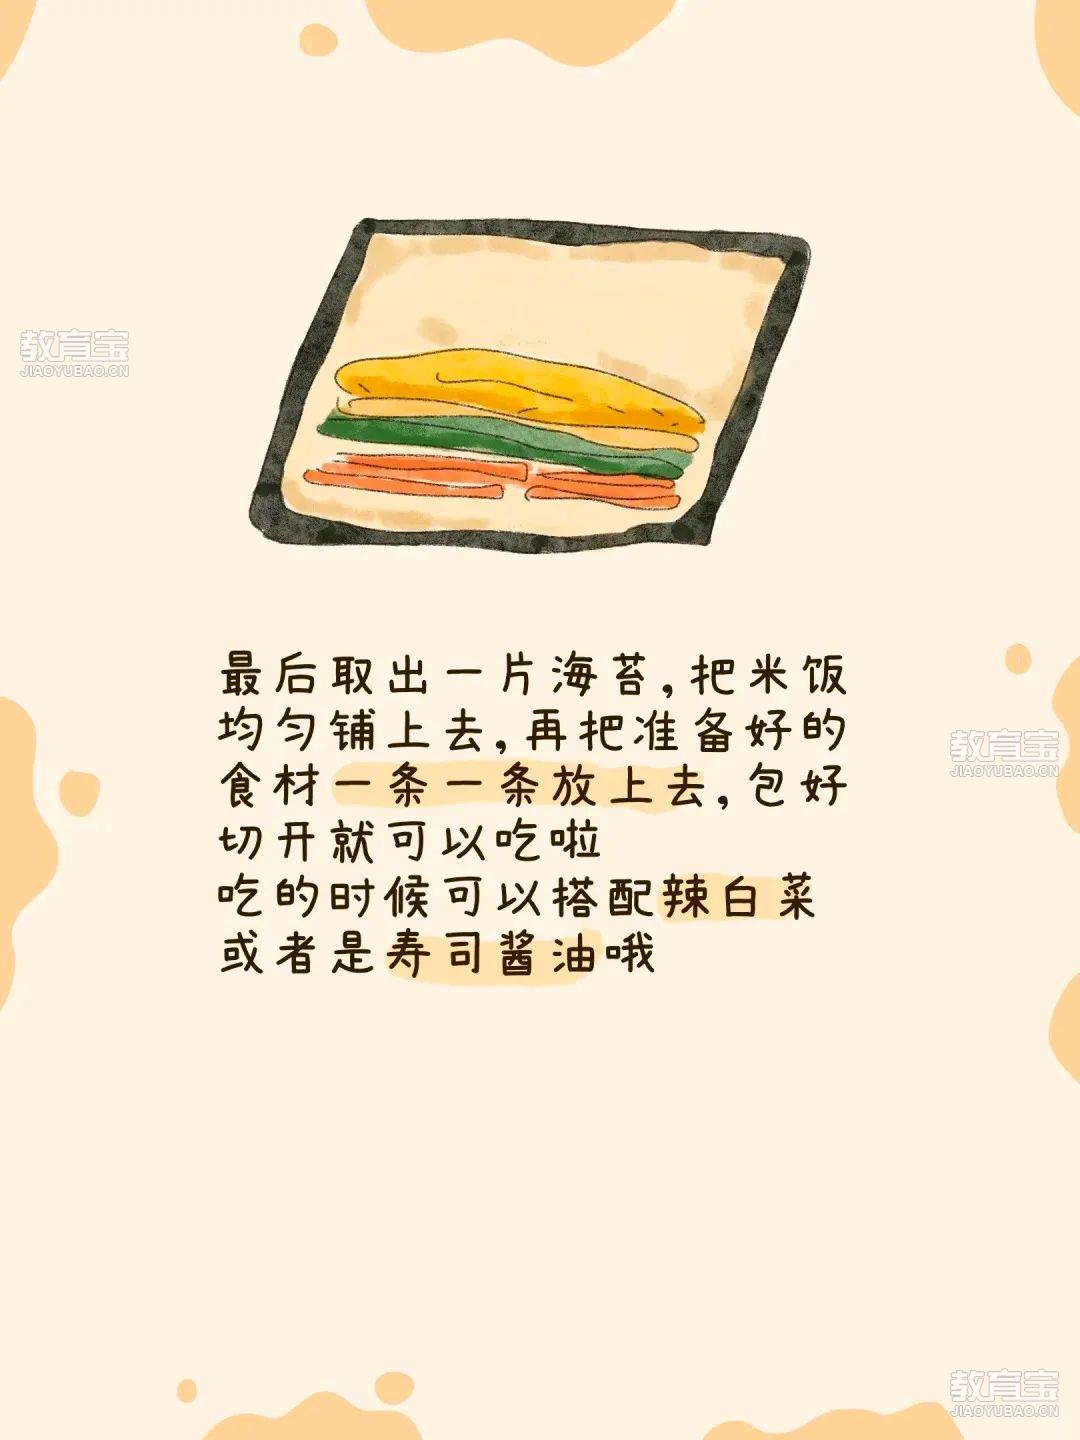 教育宝
JIAOYUBAO.CN
最后取出一片海苔,把米饭
均匀铺上去,再把准备好的
食材一条一条放上去,包好
切开就可以吃啦
吃的时候可以搭配辣白菜
或者是寿司酱油哦
教育宝
JIAOYUBAO.CN
教育宝
JIAOYUBAO.CN